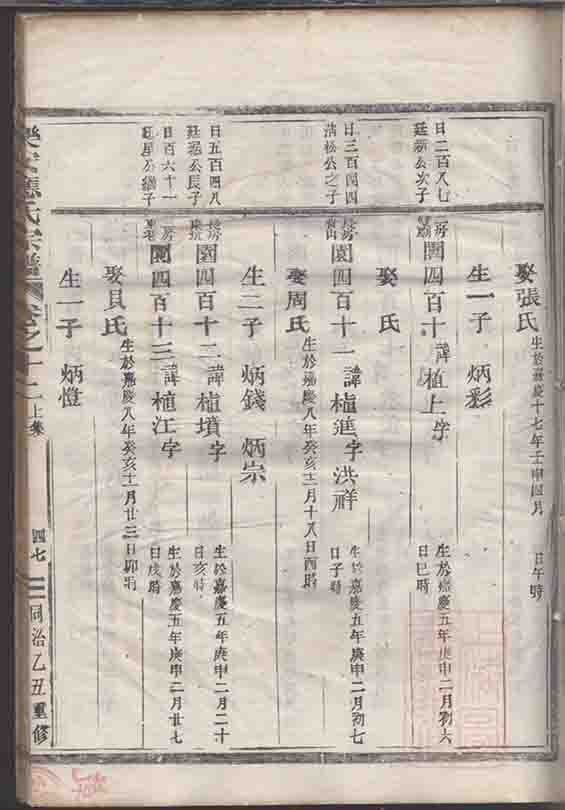 娶張氏 生於嘉慶十七年壬申四月 日午時
生一子 炳彩
日二百八七
廷 公次子
園四百十 諱植上字 生於嘉慶五年庚申二月初六
日巳時
娶 氏
日三百四四
清松公之子
園四百十一 諱植進字洪祥 生於嘉慶五年庚申二月初七
日子時
娶周氏 生於嘉慶八年癸亥十二月十八日酉時
生二子 炳錢 炳宗
日五百四八
廷 公長子
園四百十二 諱植墳字 生於嘉慶五年庚申二月二十
日亥時
日百六十一
公繼子
園四百十三 諱植江字 生於嘉慶五年庚申二月廿七
日戌時
娶貝氏 生於嘉慶八年癸亥十一月廿三日卯時
生一子 炳燈
應氏宗譜 卷之十二上集 四七 同治乙丑重修